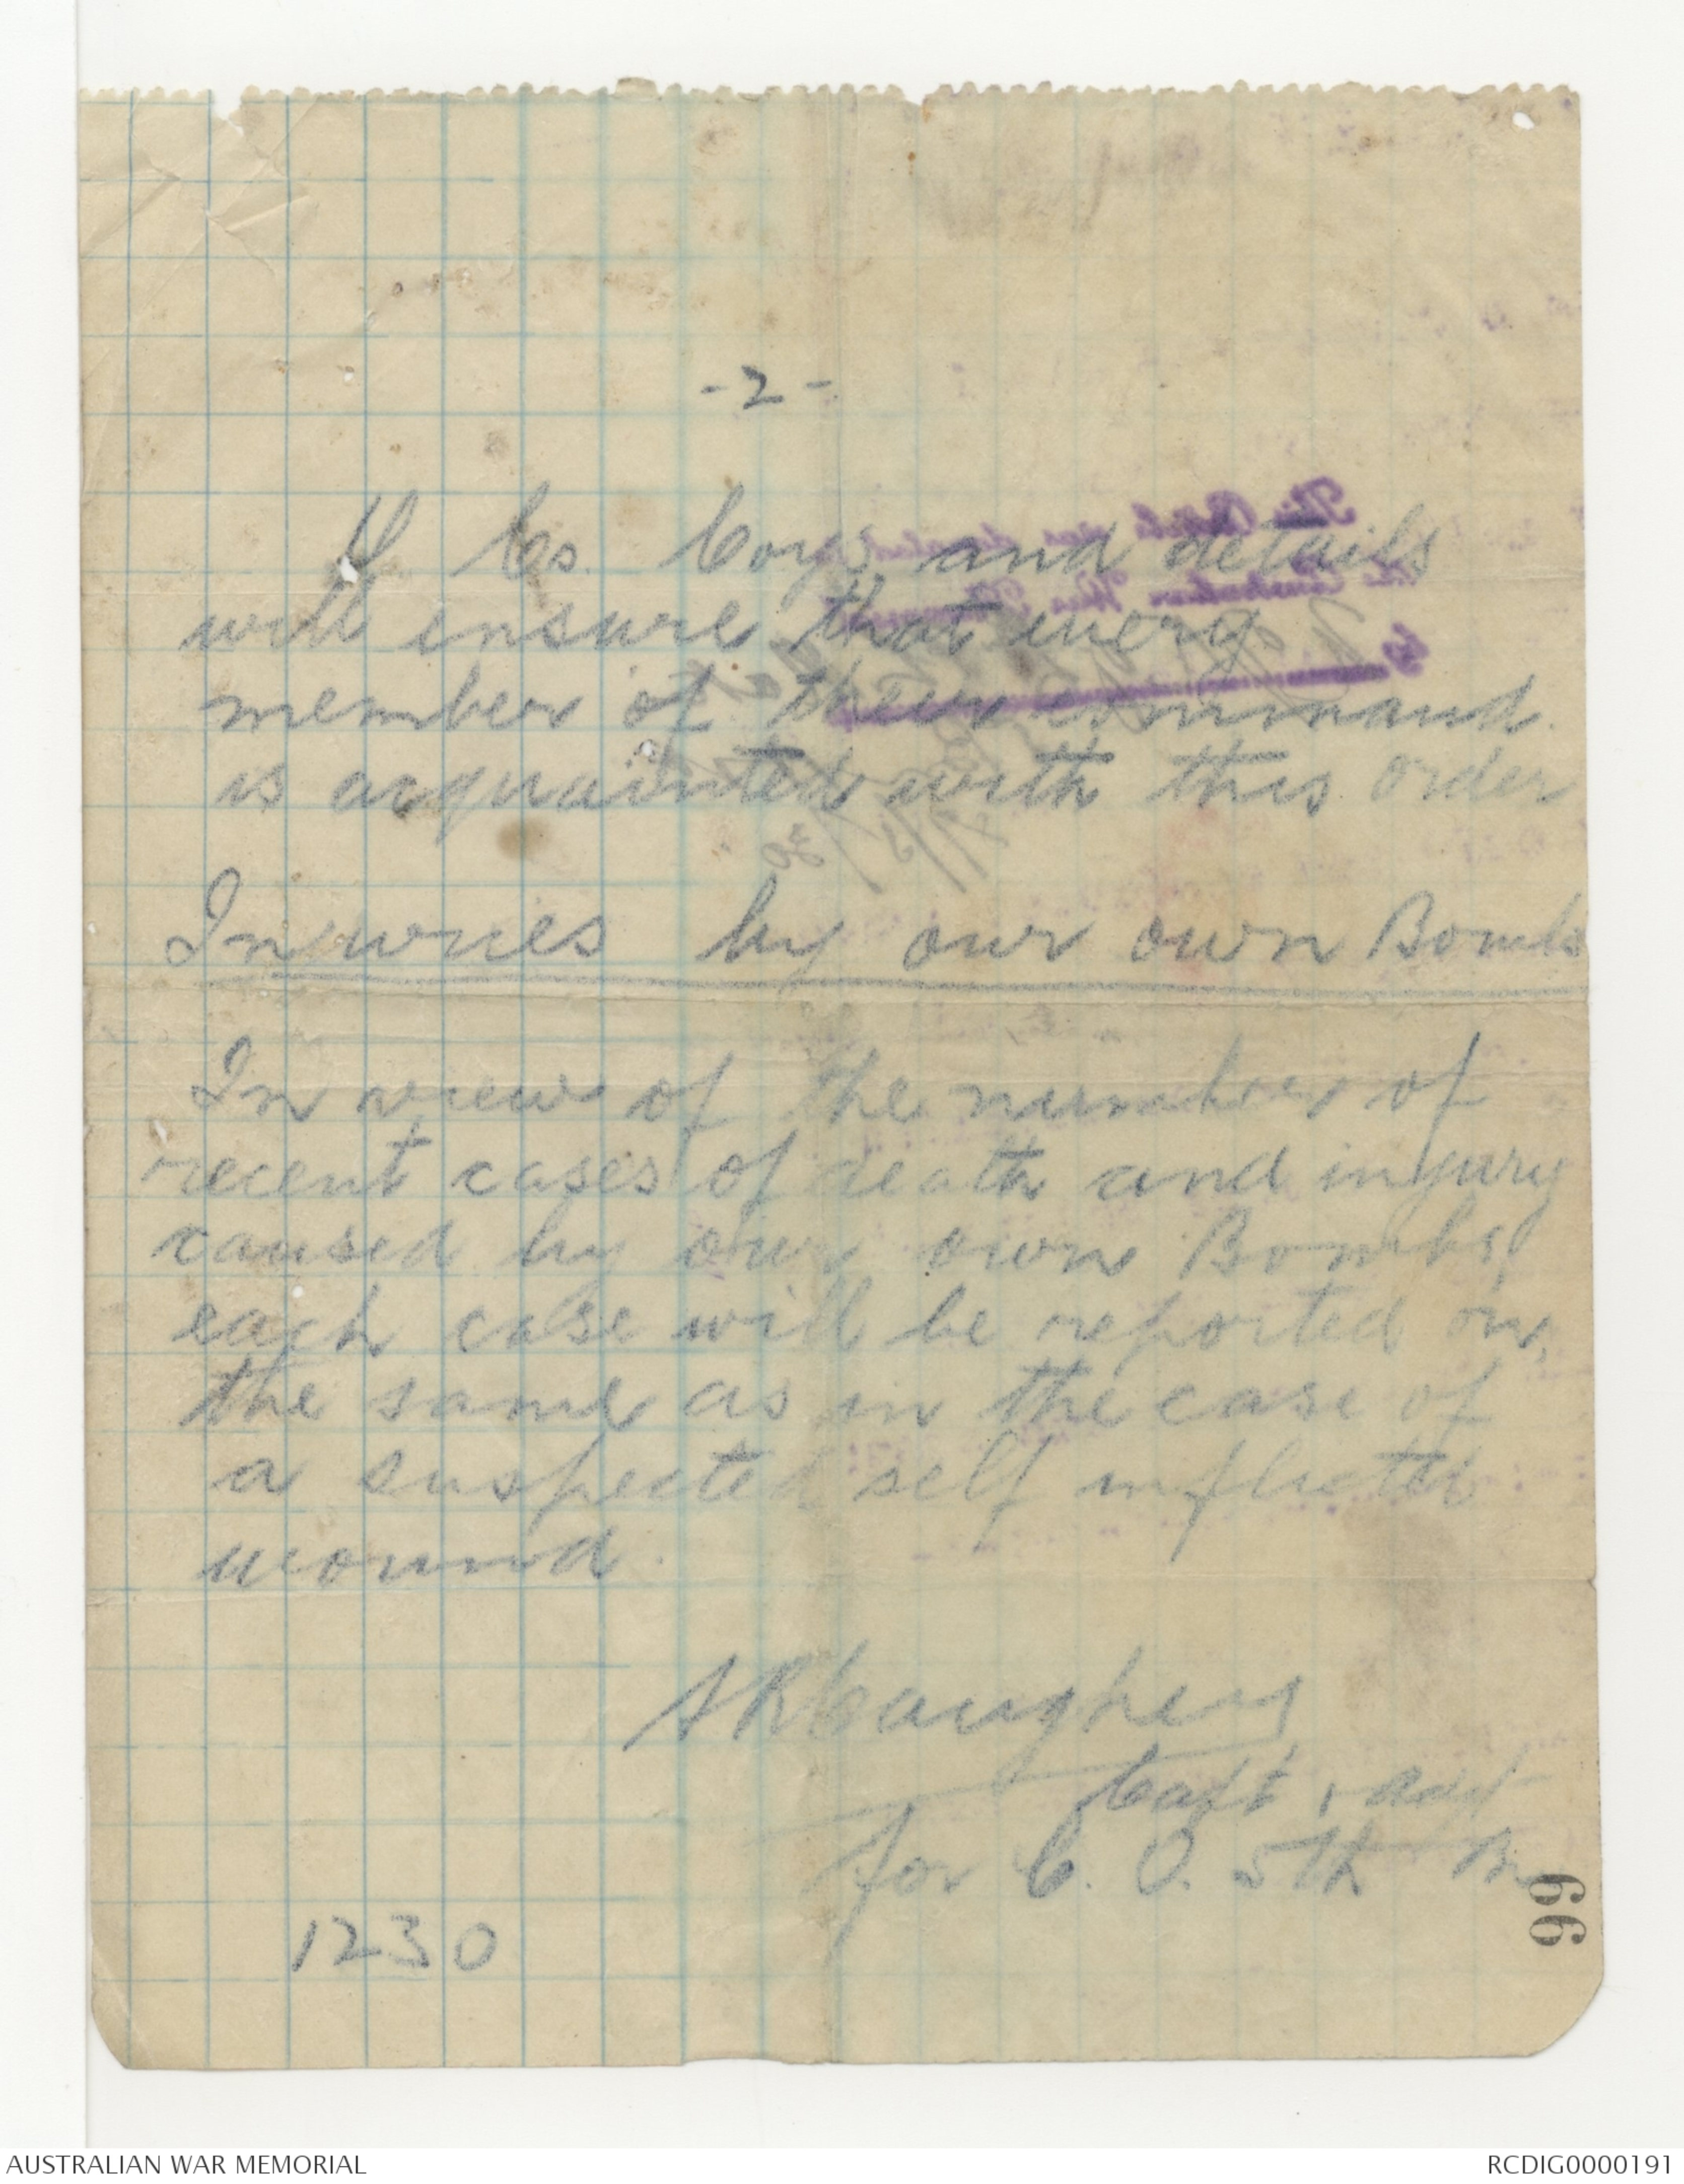 -2-
O Cs. Coys and details
will ensure that every
member of their command
is acquainted with this order
Injuries by our own Bombs
In view of the number of
recent cases of death and injury
caused by our own Bombs,
each case will be reported on,
the same as in the case of
a suspected self inflicted
wound.
Capt, Adjt
for C. O. 5th Bn
1230
66
AUSTRALIAN WAR MEMORIAL
RCDIG0000191